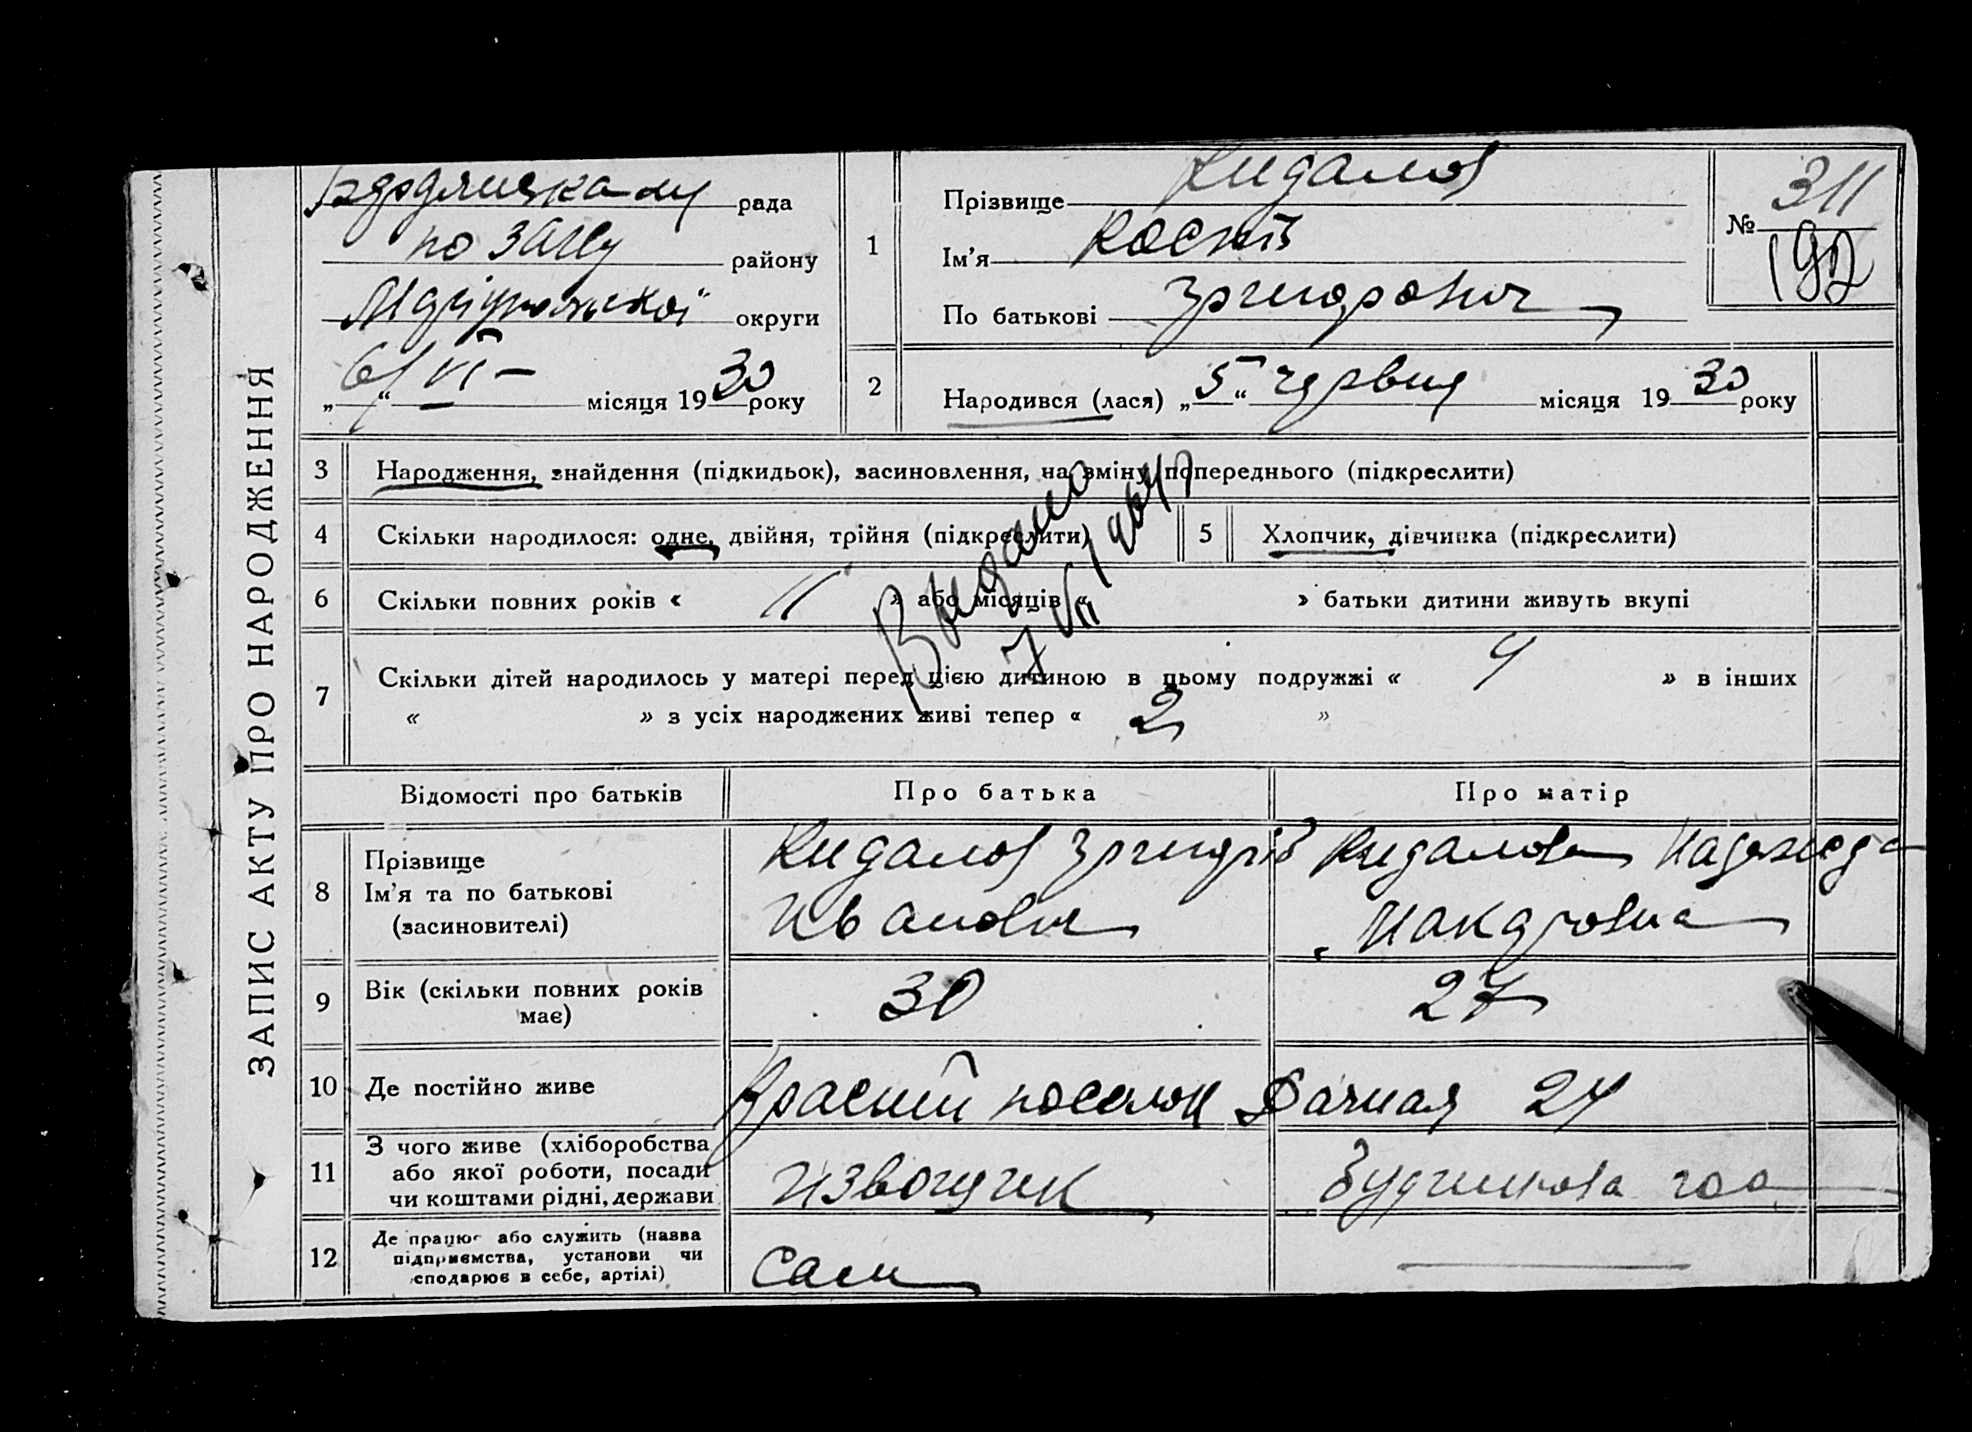 ЗАПИС АКТУ ПРО НАРОДЖЕННЯ
рада
по ЗАГСу району
Маріупольскої округи
„6“ VI – місяця 1930 року
1
Прізвище Кидалов
Ім’я
По батькові Григорович
№ 311
192
2
Народився (лася) „5“ червня місяця 1930 року
3 Народження, знайдення (підкидьок), засиновлення, на зміну попереднього (підкреслити)
4 Скільки народилося: одне, двійня, трійня (підкреслити)
5 Хлопчик, дівчинка (підкреслити)
6 Скільки повних років « 11 » або місяців « » батьки дитини живуть вкупі
7 Скільки дітей народилось у матері перед цією дитиною в цьому подружжі « 4 » в інших
« » з усіх народжених живі тепер « 2 »
Видано
7 VII
Відомості про батьків Про батька Про матір
8 Прізвище
Ім’я та по батькові
(засиновителі)
Кидалов Григорів
Иванович
Кидалова Надежда
Макаровна
9 Вік (скільки повних років
має)
30 27
10 Де постійно живе Красний поселок Дачная 24
11 З чого живе (хліборобства
або якої роботи, посади
чи коштами рідні, держави
извощик
12 Де працює або служить (назва
підприємства, установи чи
сподарює в себе, артілі)
Сам